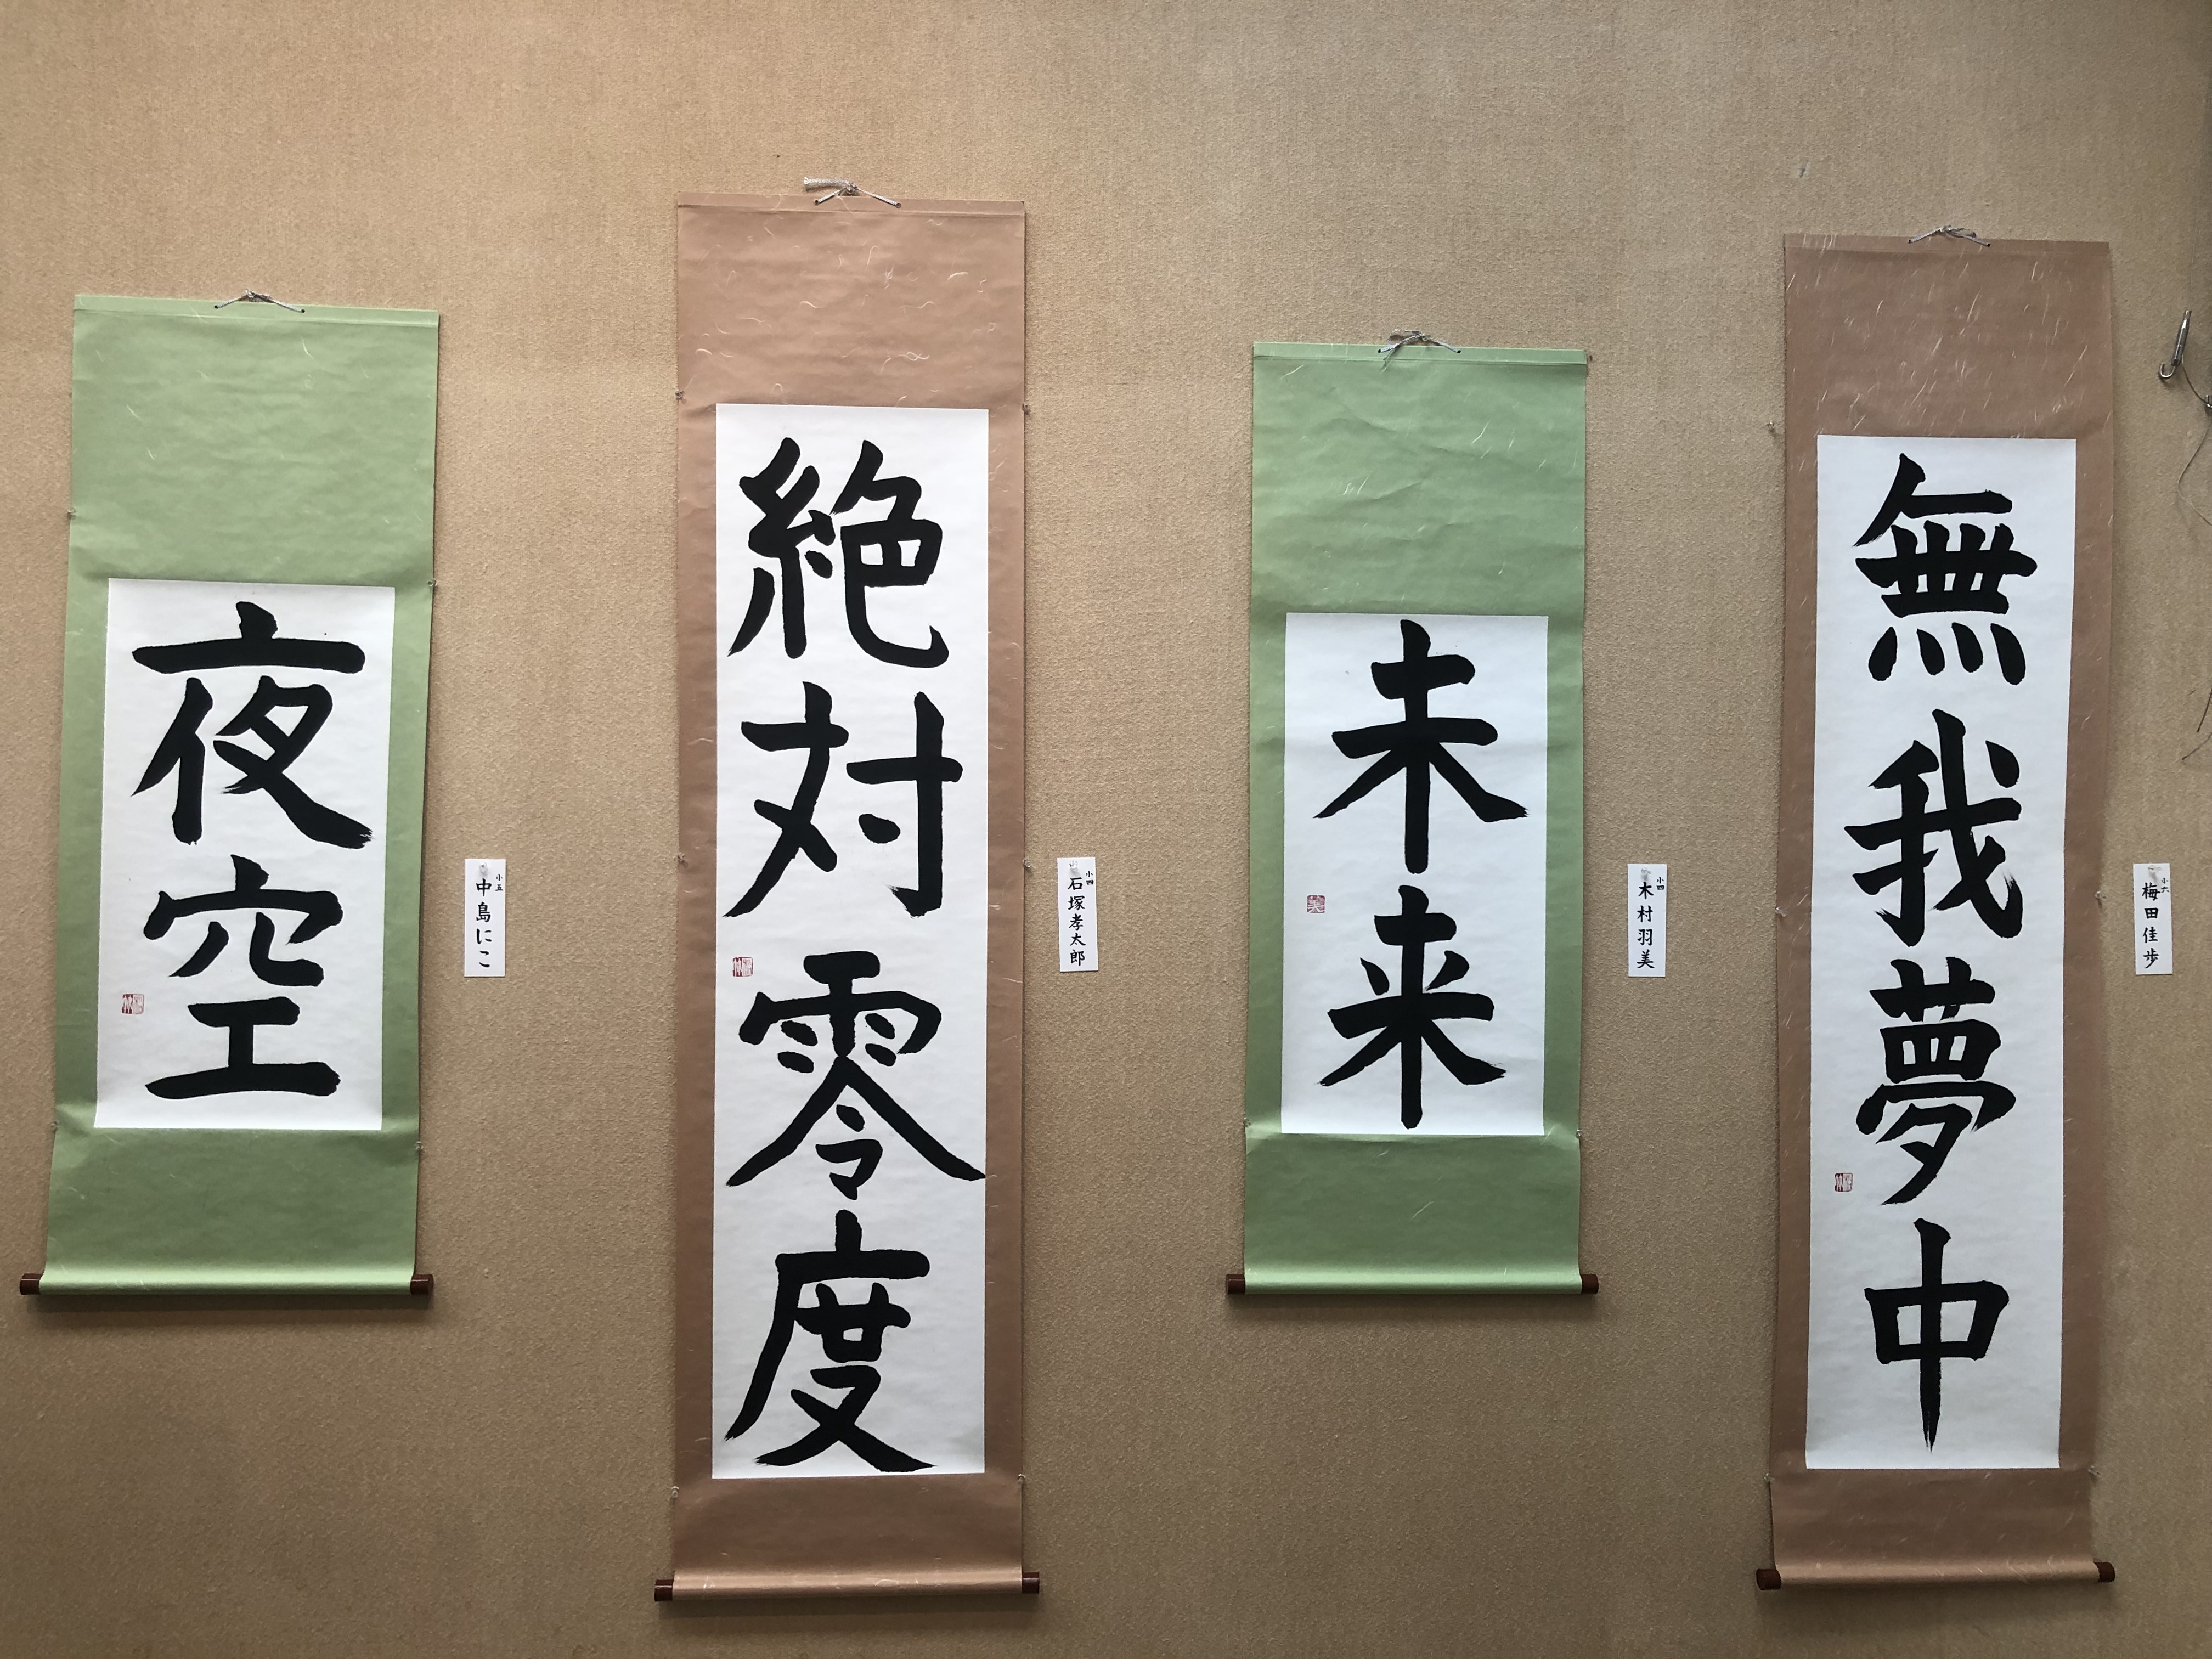 夜空
小五
中島にこ
絶対零度
小四
石塚孝太郎
未来
小四
木村羽美
美
無我夢中
小六
梅田佳歩